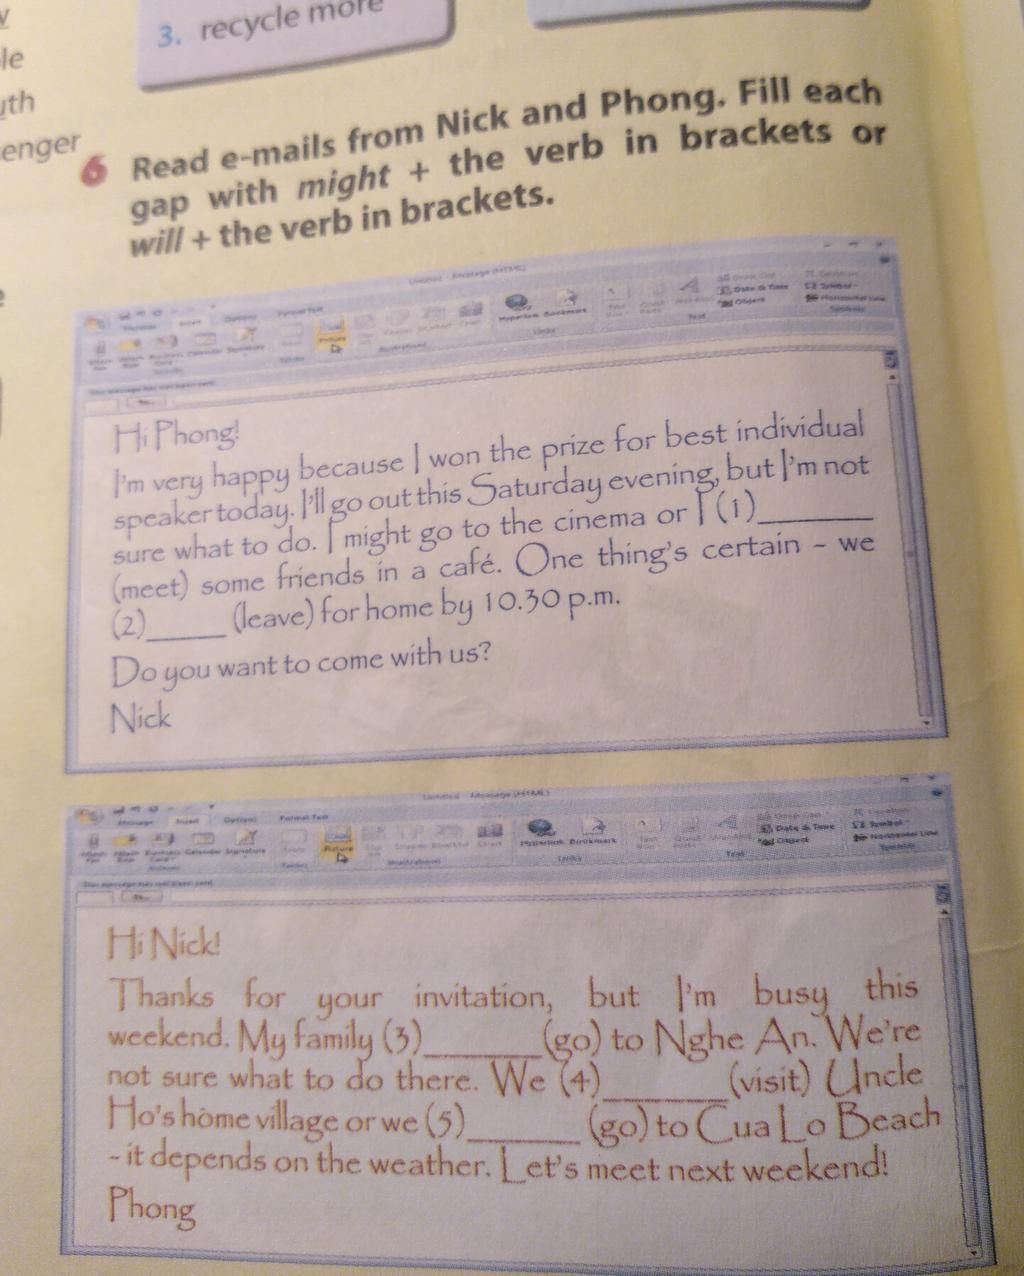 3. recycle more
le
uth
enger
6 Read e-mails from Nick and Phong. Fill each
gap with might + the verb in brackets or
will + the verb in brackets.
Hyperlink Bookmark
Links
Date & Time
Object
Text
Hi Phong!
I'm very happy because I won the prize for best individual
speaker today. I'll go out this Saturday evening, but I'm not
sure what to do. I might go to the cinema or I (1)________
(meet) some friends in a café. One thing's certain - we
(2)______ (leave) for home by 10.30 p.m.
Do you want to come with us?
Nick
Message Insert Options Format Text
Picture
Hyperlink Bookmark
Links
Date & Time
Object
Text
Symbol
Horizontal Line
Hi Nick!
Thanks for your invitation, but I'm busy this
weekend. My family (3)________(go) to Nghe An. We're
not sure what to do there. We (4)________ (visit) Uncle
Ho's home village or we (5)________ (go) to Cua Lo Beach
- it depends on the weather. Let's meet next weekend!
Phong